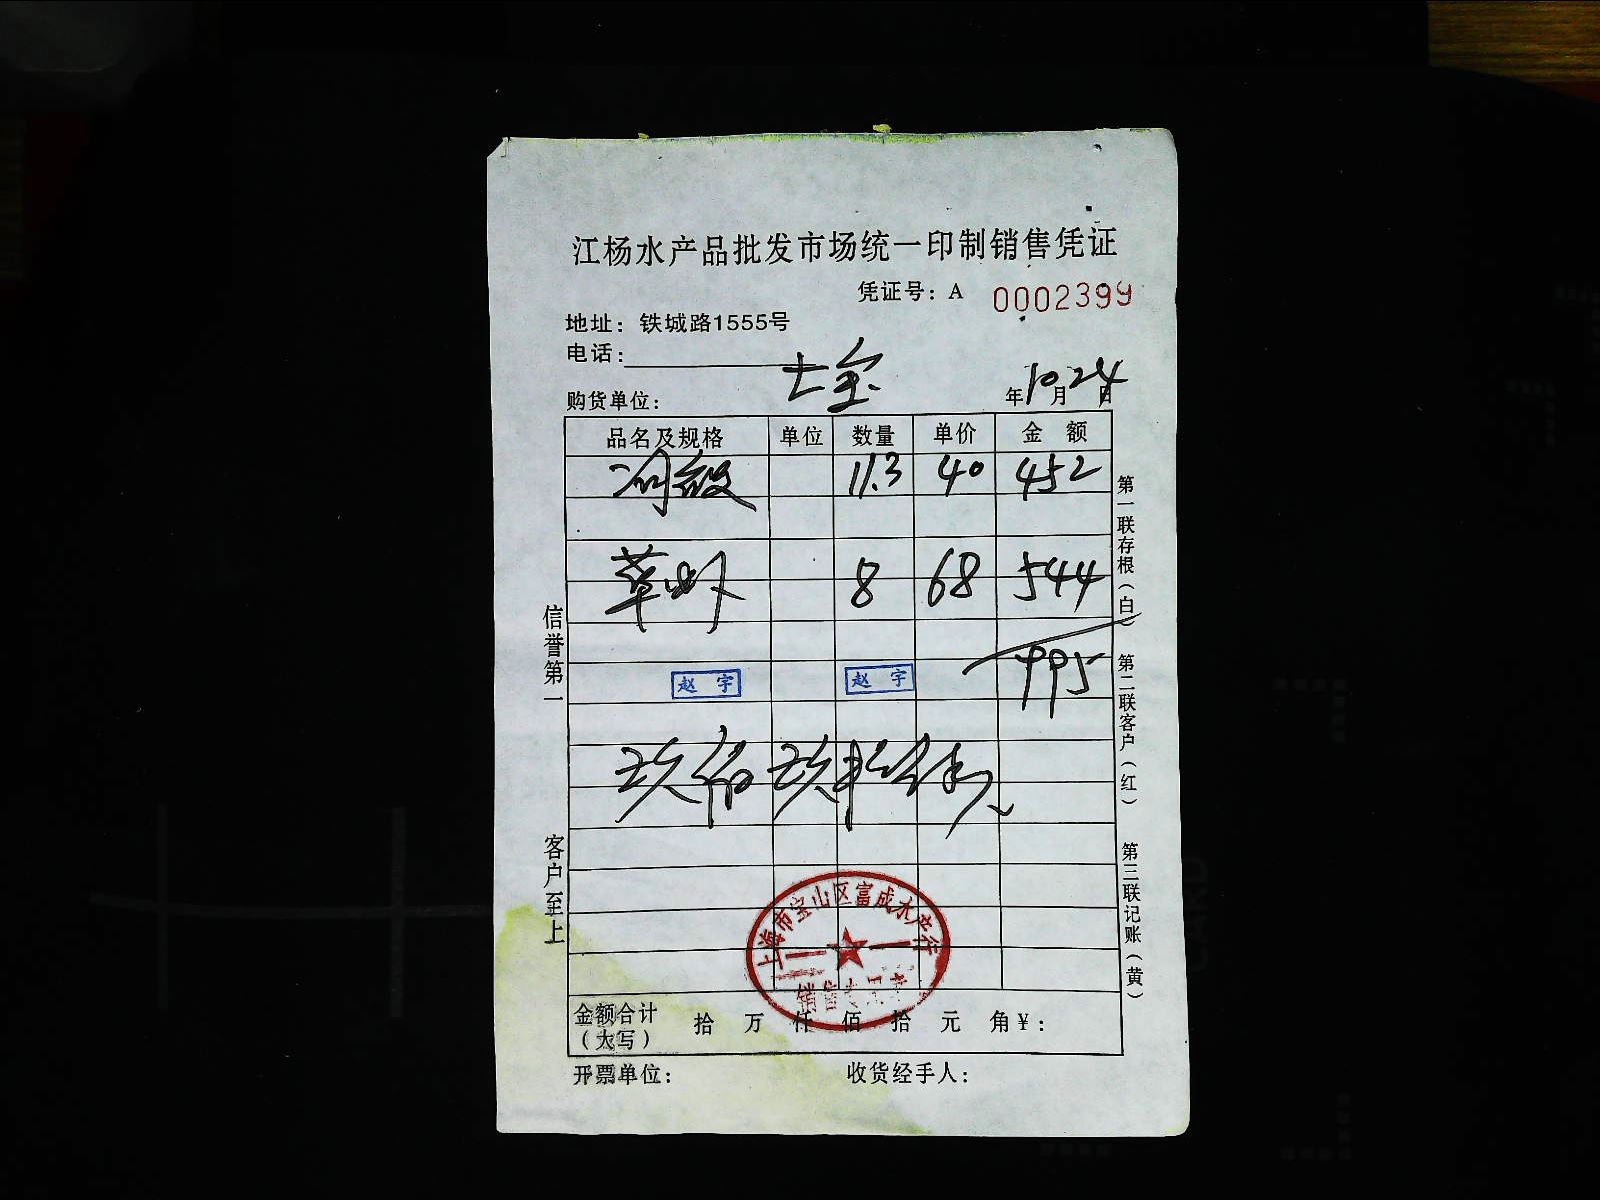 江杨水产品批发市场统一印制销售凭证
凭证号：A 0002399
地址：铁城路1555号
电话：
购货单位： 七宝 年10月24日
品名及规格 单位 数量 单价 金额
11.3 40 452
草虾 8 68 544
995
赵宇 赵宇
玖佰玖拾伍
上海市宝山区富成水产行
销售专用章
金额合计（大写） 拾 万 仟 佰 拾 元 角¥：
开票单位： 收货经手人：
信誉第一 客户至上
第一联存根（白） 第二联客户（红） 第三联记账（黄）